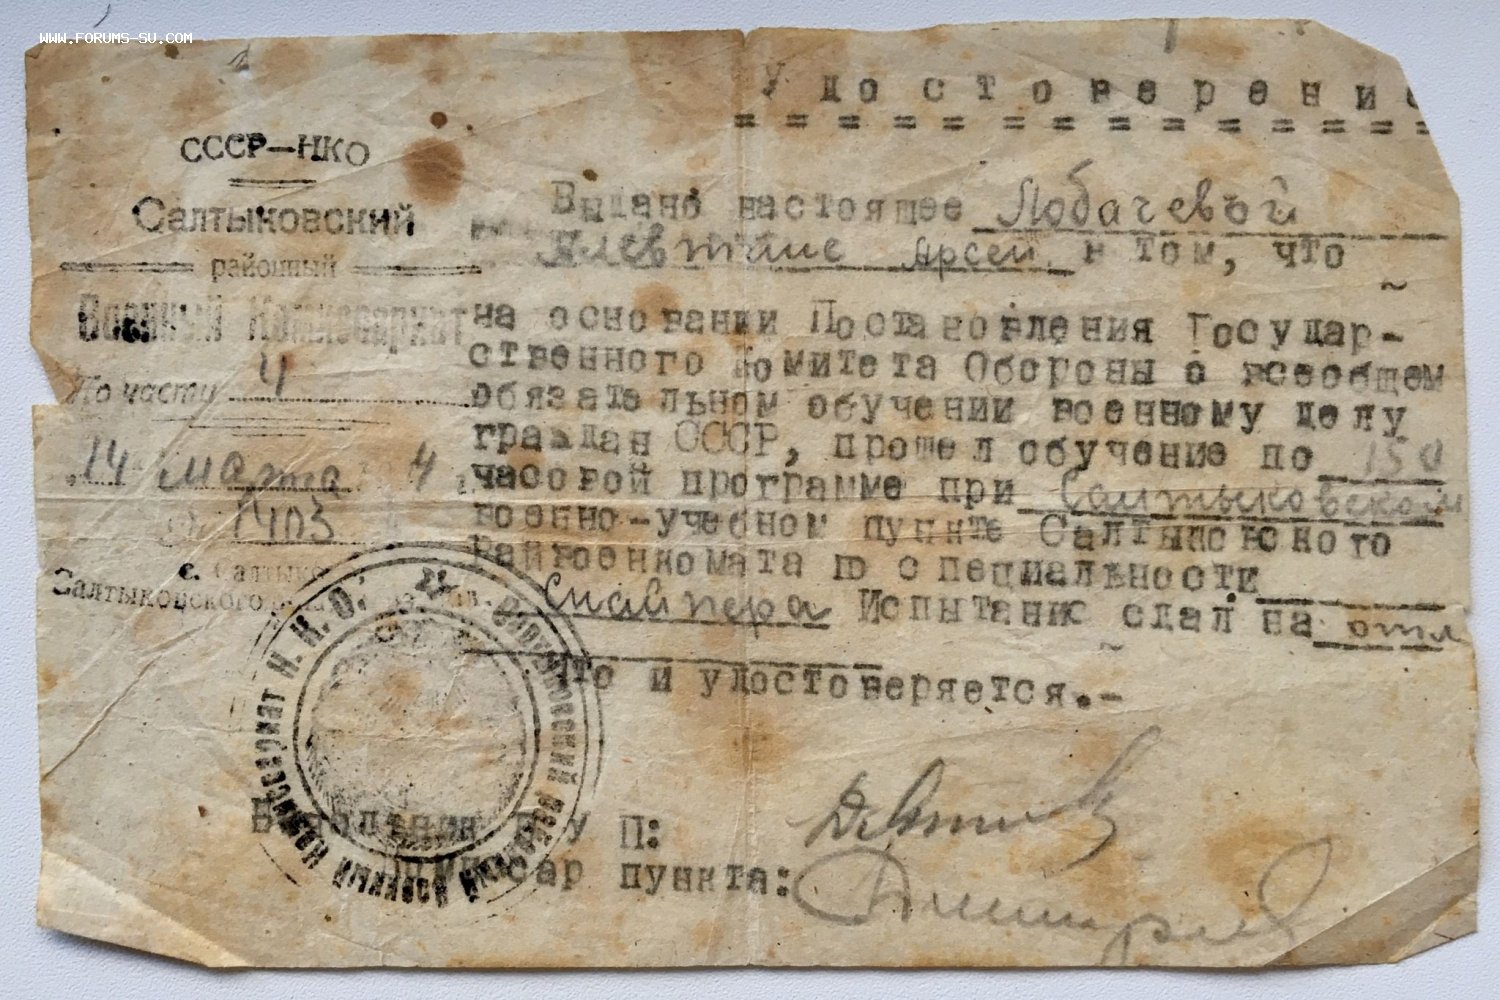 WWW.FORUMS-SU.COM
Удостоверение
СССР-НКО
Салтыковский
районный
Военный Комиссариат
По части 4
14 марта 4
1403
с. Салтыко
Салтыковского
Выдано настоящее Лобачевой
Алевтине Арсен. в том, что
на основании Постановления Государ-
ственного Комитета Обороны о всеобщем
обязательном обучении военному делу
граждан СССР, прошел обучение по 150
часовой программе при Салтыковском
военно-учебном пункте Салтыковского
Райвоенкомата по специальности
Снайпера Испытание сдал на отл
что и удостоверяется.-
Салтыковский районный военный комиссариат Н.К.О.
Начальник В У П:
Комиссар пункта: